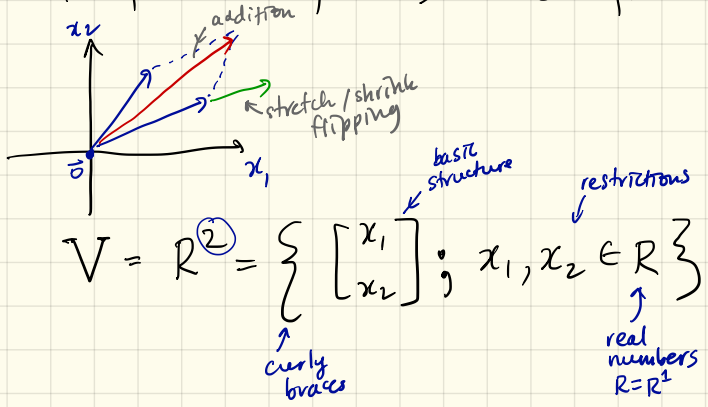 addition
x₂
stretch/shrink
flipping
0⃗
x₁
basic
structure
restrictions
V = R² = { [x₁ x₂] ; x₁, x₂ ∈ R }
curly
braces
real
numbers
R = R¹